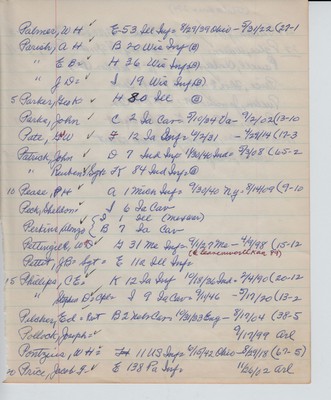 Palmer, W H ✓ E-53 Ill Inf= 9/29/39 Ohio - 5/31/22 (27-1
Parish, A H B 20 Wis Inf (B)
" E B= ✓ H 36 Wis Inf (B)
" J D= ✓ I 19 Wis Inf (B)
5 Parker, Geo K ✓ H 80 Ill (B)
Parks, John ✓ C 2 Ia Cav= Va- (13-10
Pate, W ✓ 12 Ia Inf= (17-3
Patrick, John ✓ D 7 Ind Inf (65-2
" Reuben Sgt= K 84 Ind Inf (B)
10 Pease, P H ✓ A 1 Mich Inf= 9/30/40 N.Y= 8/14/09 (9-10
Peck, Sheldon= ✓ I 6 Ia Cav
Perkins, Alonzo ✓ { I 1 Ill (Mexican)
B 7 Ia Cav
Pettingill, W ✓ G 31 Me Inf= Me - 4/4/98 (15-12
(Leavenworth Kan
Pettit, J B= Sgt= ✓ E 11 Ill Inf=
15 Phillips, C E= ✓ K 12 Ia Inf 10/18/36 Ind= 7/4/40 (20-12
" Cpl= I 9 Ia Cav= 9/11/46 - 5/17/20 (13-2
Pilcher, Ed= Pvt B 2 Neb Cav= 12/31/33 Eng - 8/17/04 (38-5
Pollock, Joseph= ✓ 9/17/49 Arl
Pontzius, W H= ✓ H 11 US Inf= 6/15/42 Ohio - 5/29/18 (67-5)
20 Price, Jacob F= ✓ E 138 Pa Inf= 11/26/02 Arl